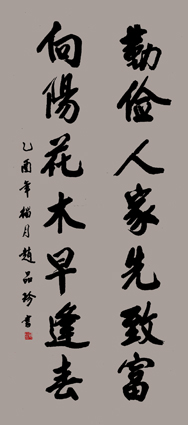 勤俭人家先致富
向陽花木早逢春
乙酉年猫月趙品珍書